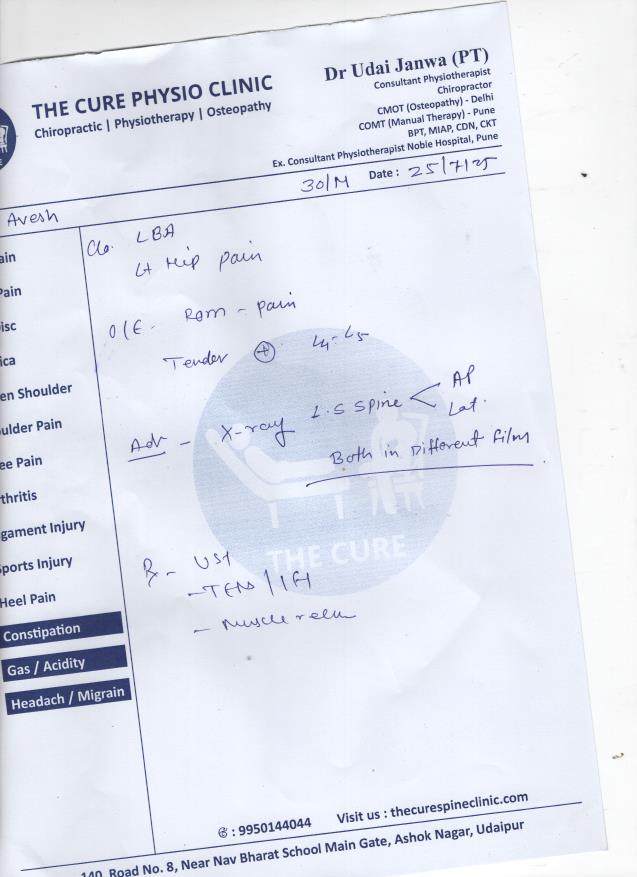 THE CURE PHYSIO CLINIC
Chiropractic | Physiotherapy | Osteopathy
Dr Udai Janwa (PT)
Consultant Physiotherapist
Chiropractor
CMOT (Osteopathy) - Delhi
COMT (Manual Therapy) - Pune
BPT, MIAP, CDN, CKT
Ex. Consultant Physiotherapist Noble Hospital, Pune
30/M Date : 25/7/25
Avesh
C/o. LBA
Lt Hip pain
O/E - ROM - pain
Tender ⊕ L4-L5
Adv - X-ray L.S Spine < AP
Lat.
Both in Different Film
Rx - UST
- TENS / IFT
- Muscle
ain
Pain
isc
ica
en Shoulder
ulder Pain
ee Pain
thritis
gament Injury
ports Injury
Heel Pain
Constipation
Gas / Acidity
Headach / Migrain
THE CURE
RE
✆ : 9950144044 Visit us : thecurespineclinic.com
140, Road No. 8, Near Nav Bharat School Main Gate, Ashok Nagar, Udaipur